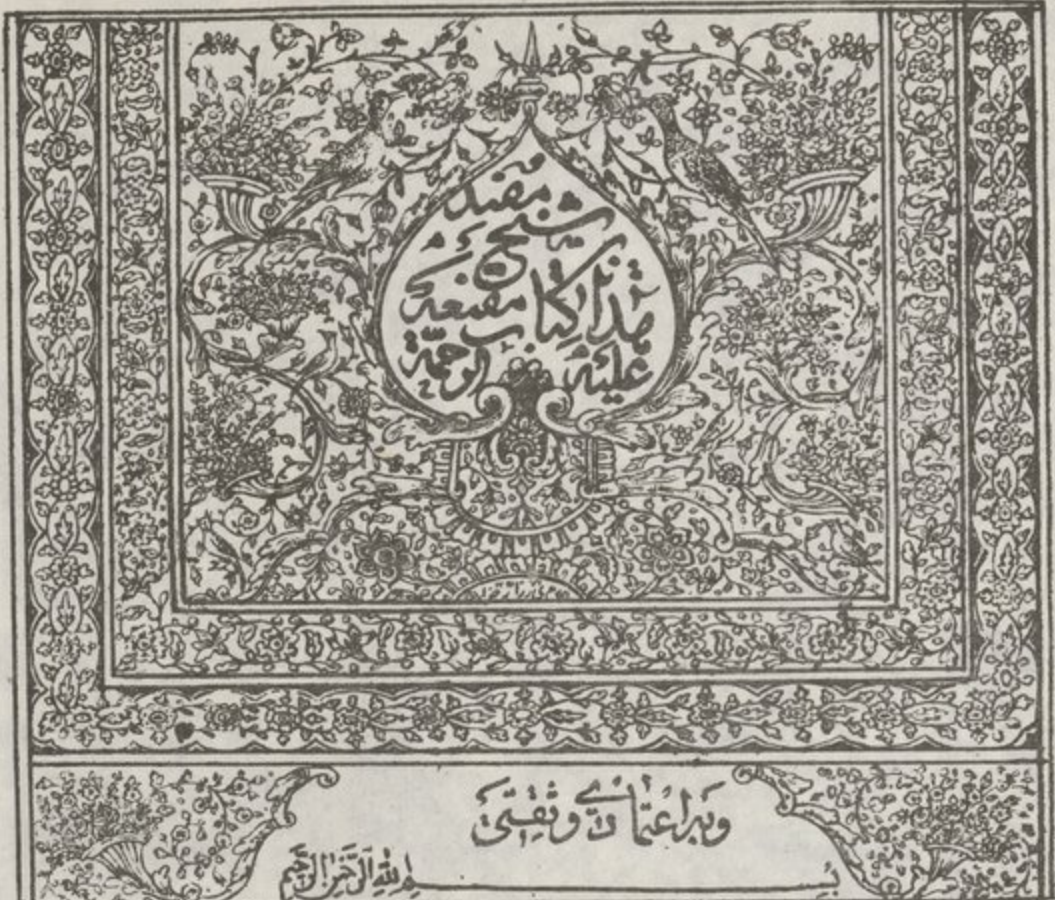 هذا كتاب مقنعه
شيخ
مفيد
عليه الرحمة
وبه اعتمادي وثقتي
بسم الله الرحمن الرحيم